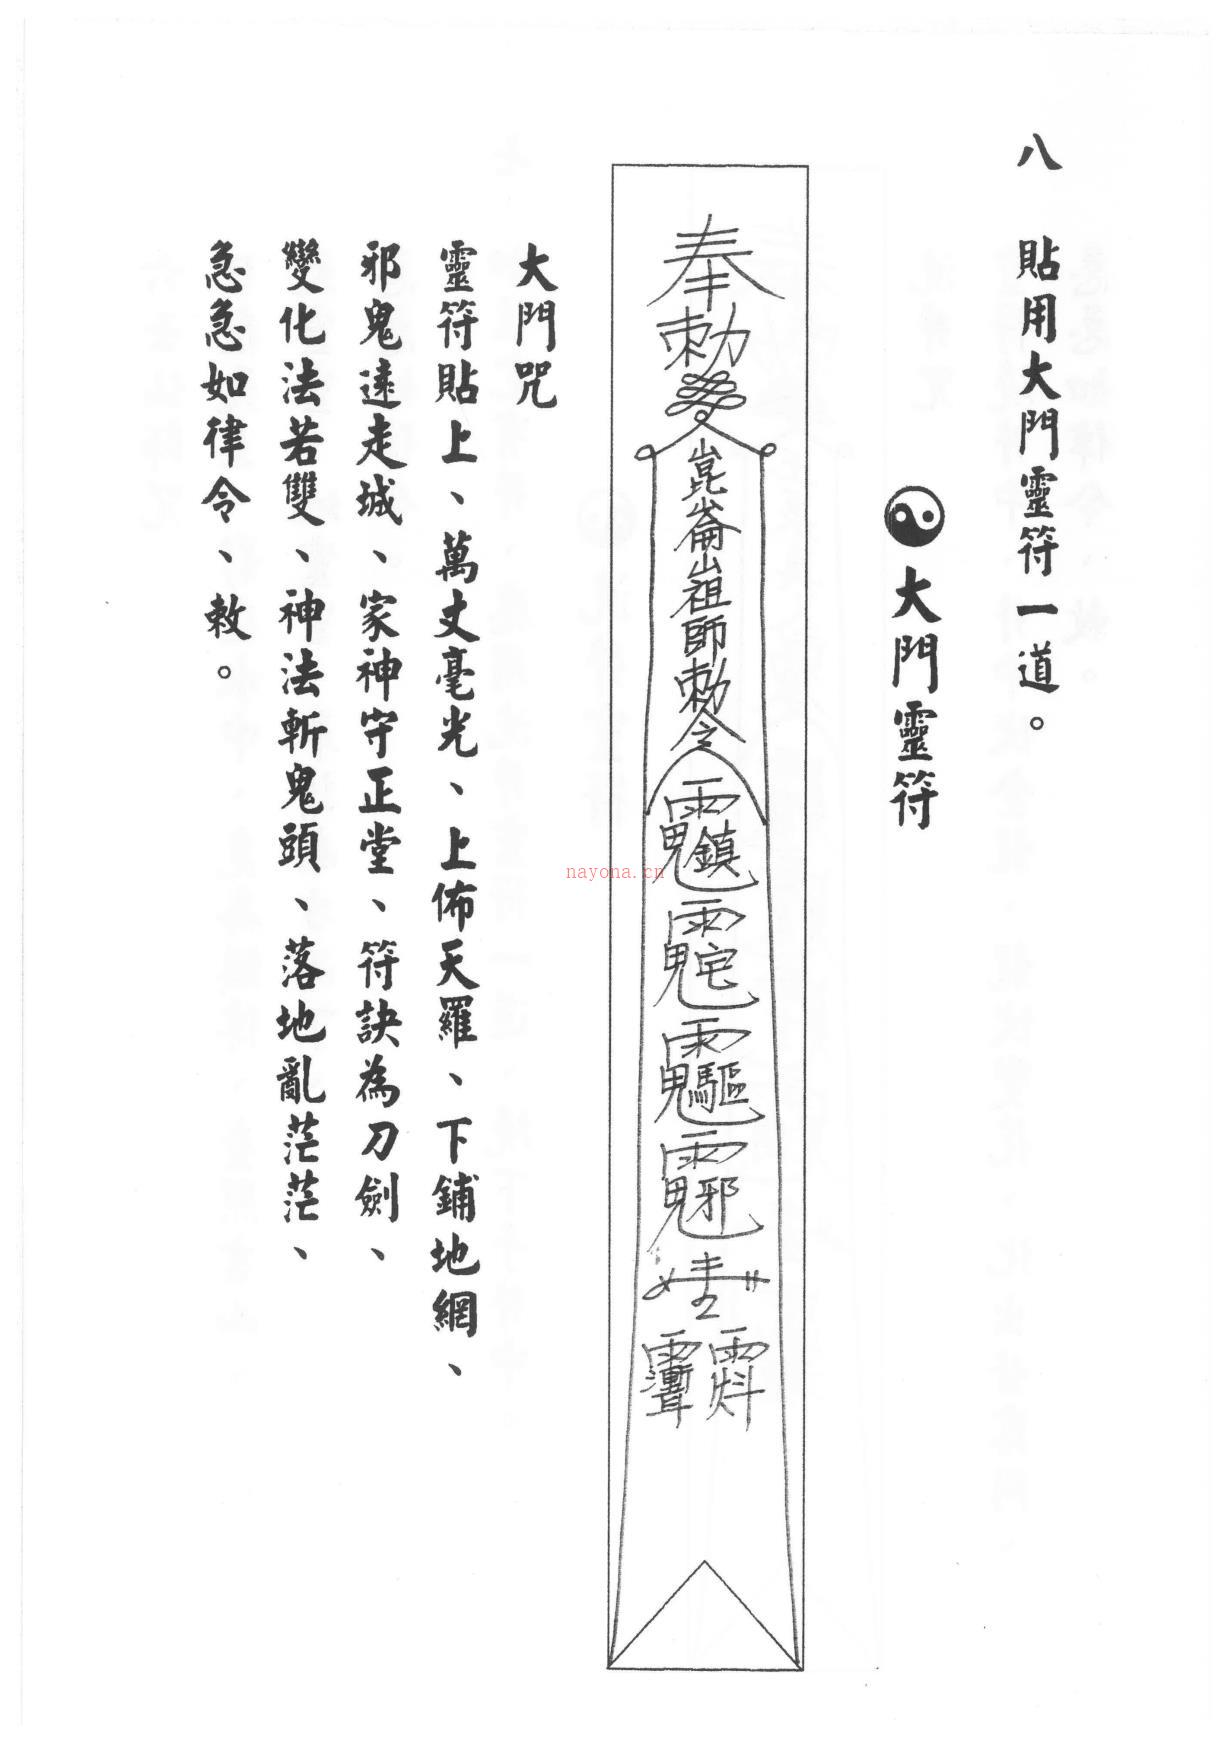 八 貼用大門靈符一道。
大門靈符
奉
勅
崑崙山祖師勅令
鎮
宅
驅
邪
大門咒
靈符貼上、萬丈毫光、上佈天羅、下鋪地網、
邪鬼遠走城、家神守正堂、符訣為刀劍、
變化法若雙、神法斬鬼頭、落地亂茫茫、
急急如律令、敕。
nayona.cn